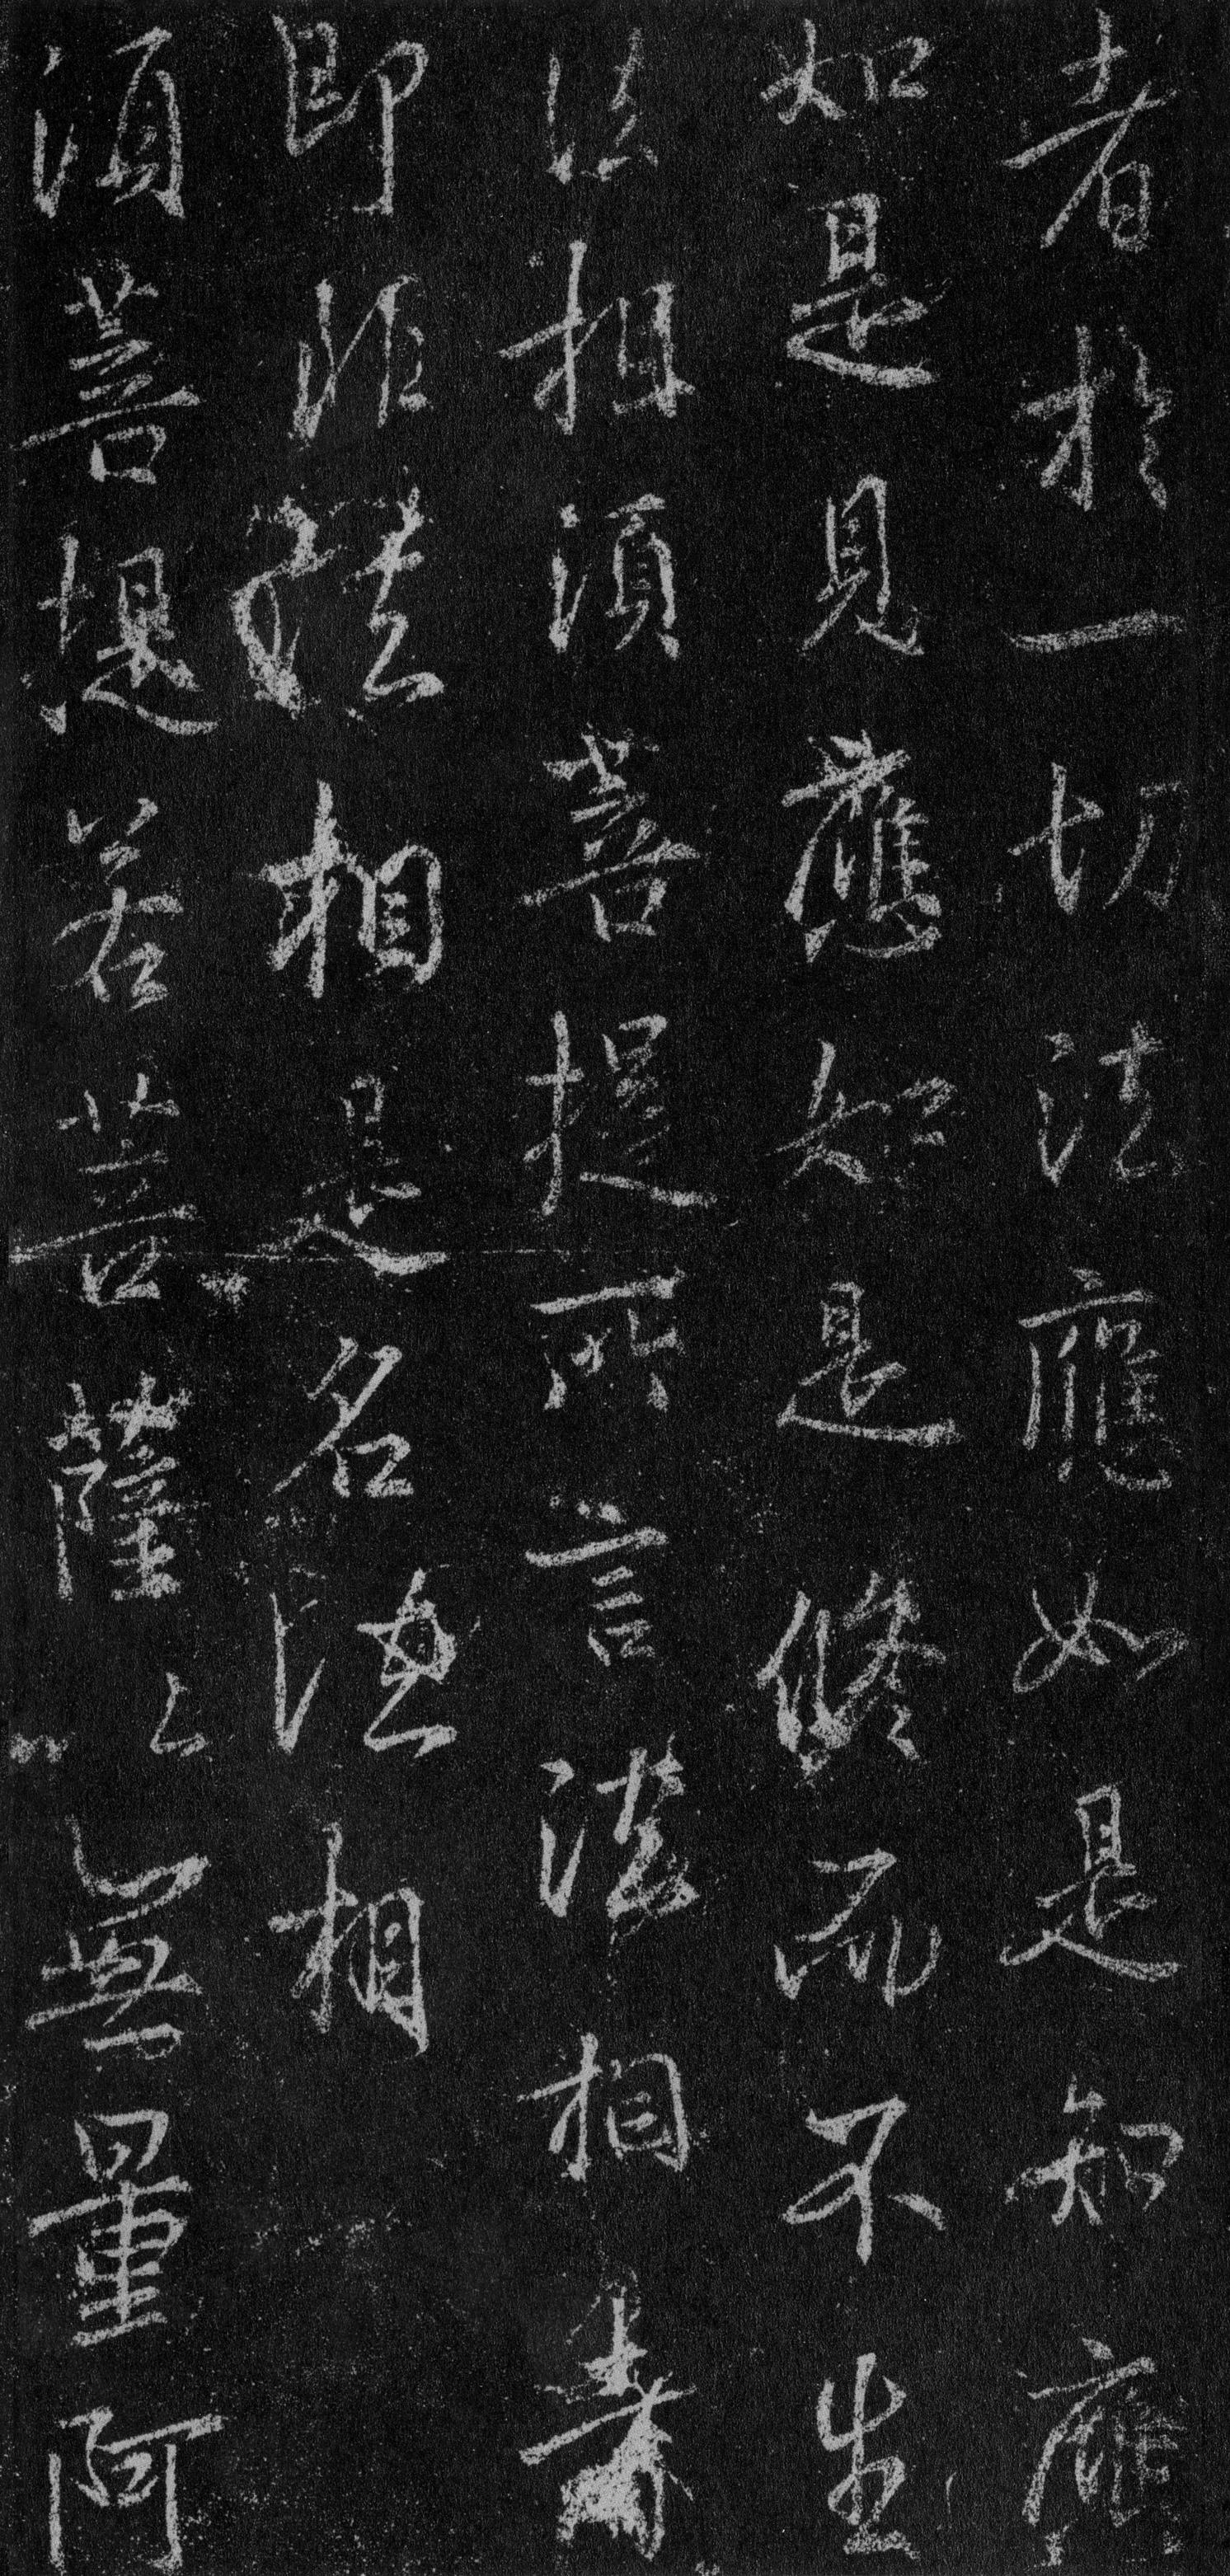 者於一切法應如是知應
如是見應知是修而不生
法相須菩提所言法相者
即非法相是名法相
須菩提若菩薩〻無量阿